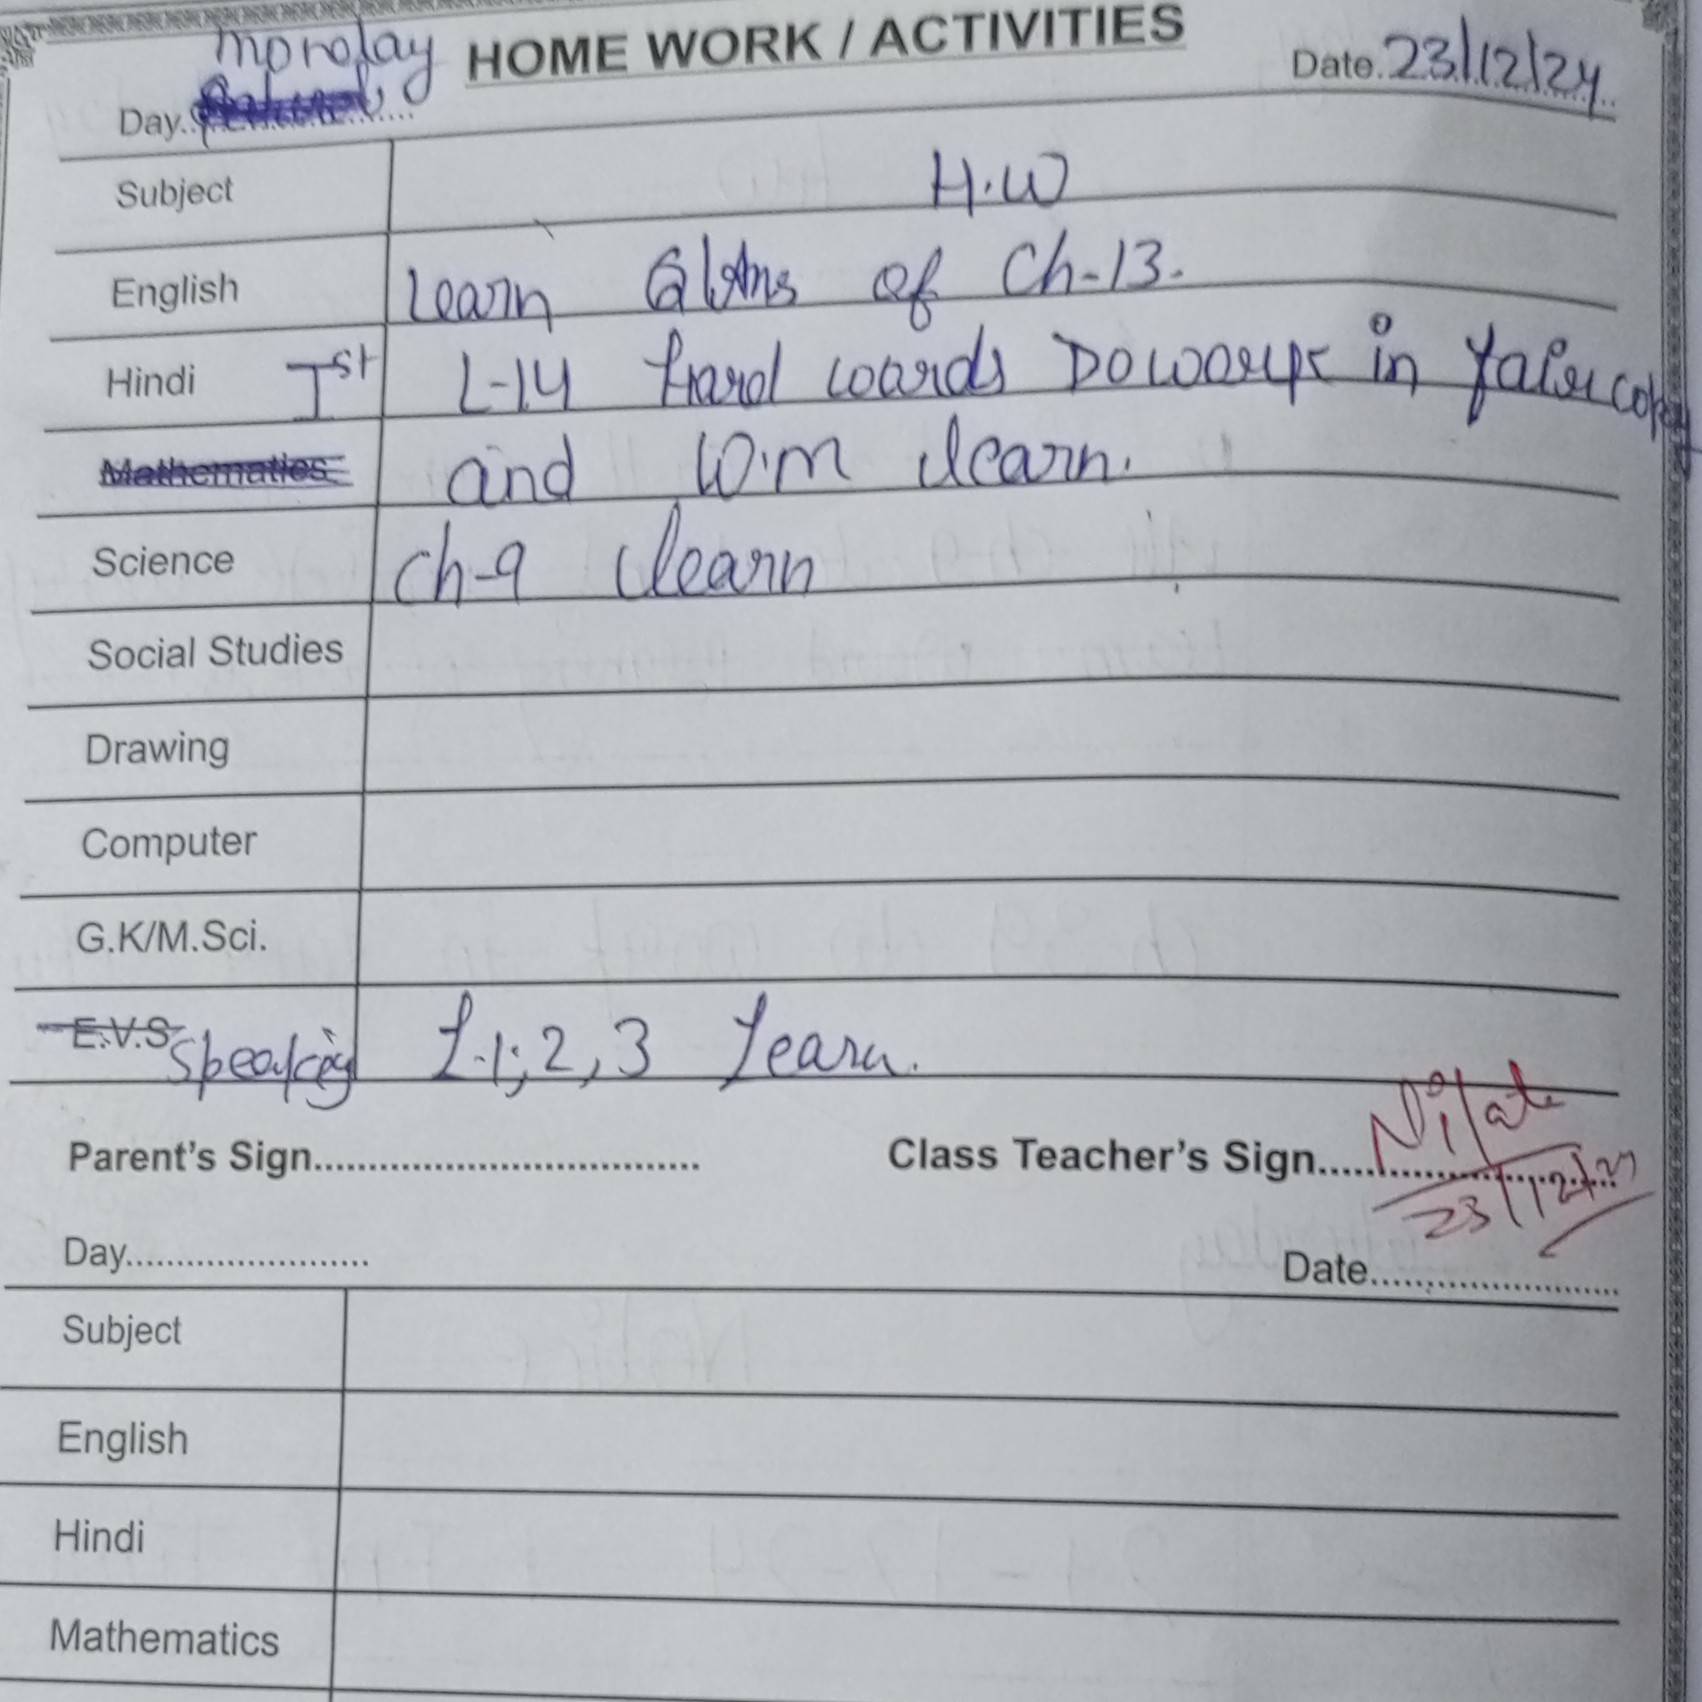 HOME WORK / ACTIVITIES
Day. Monday Date. 23/12/24
Subject H.W
English Learn Q/Ans of Ch-13.
Hindi Ist L-14 hard words Do work in copy
Mathematics and W.m learn.
Science Ch-9 learn
Social Studies
Drawing
Computer
G.K/M.Sci.
E.V.S Speaking L-1, 2, 3 learn.
Parent's Sign.................................... Class Teacher's Sign.....
23/12/24
Day........................ Date........................
Subject
English
Hindi
Mathematics